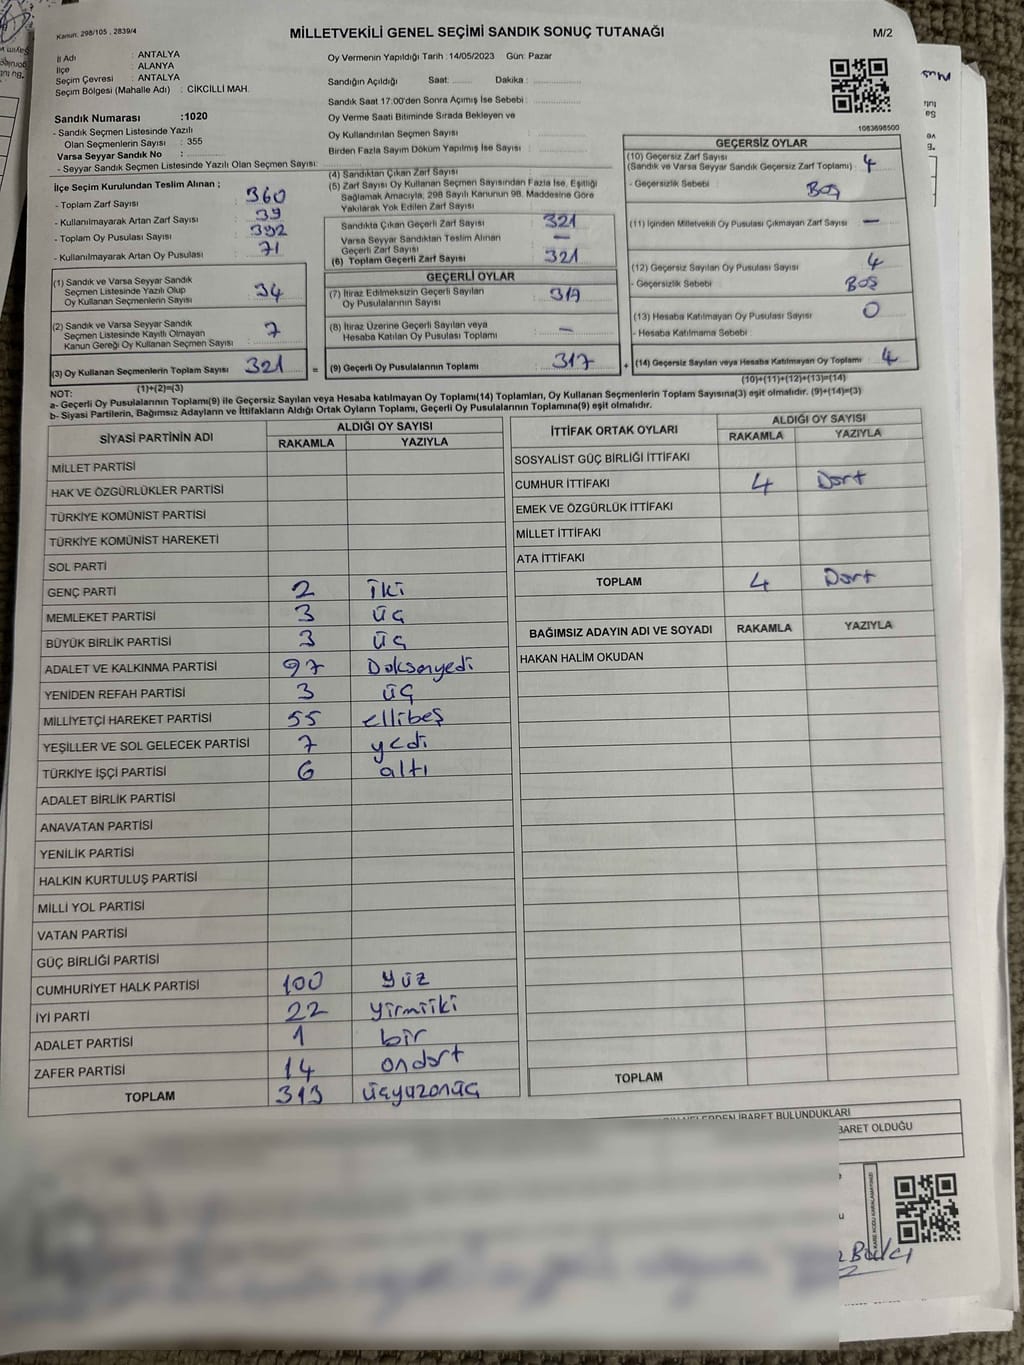 Kanun. 298/105 . 2839/4
MİLLETVEKİLİ GENEL SEÇİMİ SANDIK SONUÇ TUTANAĞI
M/2
İl Adı : ANTALYA
İlçe : ALANYA
Seçim Çevresi : ANTALYA
Seçim Bölgesi (Mahalle Adı) : CİKCİLLİ MAH.
Sandık Numarası :1020
- Sandık Seçmen Listesinde Yazılı
Olan Seçmenlerin Sayısı : 355
Varsa Seyyar Sandık No :
- Seyyar Sandık Seçmen Listesinde Yazılı Olan Seçmen Sayısı:
Oy Vermenin Yapıldığı Tarih :14/05/2023 Gün: Pazar
Sandığın Açıldığı Saat: Dakika :
Sandık Saat 17:00'den Sonra Açımış İse Sebebi :
Oy Verme Saati Bitiminde Sırada Bekleyen ve
Oy Kullandırılan Seçmen Sayısı :
Birden Fazla Sayım Döküm Yapılmış İse Sayısı :
1083698500
İlçe Seçim Kurulundan Teslim Alınan ;
- Toplam Zarf Sayısı : 360
- Kullanılmayarak Artan Zarf Sayısı : 39
- Toplam Oy Pusulası Sayısı : 392
- Kullanılmayarak Artan Oy Pusulası : 71
(1) Sandık ve Varsa Seyyar Sandık
Seçmen Listesinde Yazılı Olup
Oy Kullanan Seçmenlerin Sayısı : 34
(2) Sandık ve Varsa Seyyar Sandık
Seçmen Listesinde Kayıtlı Olmayan
Kanun Gereği Oy Kullanan Seçmen Sayısı : 7
(3) Oy Kullanan Seçmenlerin Toplam Sayısı : 321
(1)+(2)=(3)
(4) Sandıktan Çıkan Zarf Sayısı :
(5) Zarf Sayısı Oy Kullanan Seçmen Sayısından Fazla İse, Eşitliği
Sağlamak Amacıyla, 298 Sayılı Kanunun 98. Maddesine Göre
Yakılarak Yok Edilen Zarf Sayısı :
Sandıkta Çıkan Geçerli Zarf Sayısı : 321
Varsa Seyyar Sandıktan Teslim Alınan
Geçerli Zarf Sayısı : -
(6) Toplam Geçerli Zarf Sayısı : 321
GEÇERLİ OYLAR
(7) İtiraz Edilmeksizin Geçerli Sayılan
Oy Pusulalarının Sayısı : 317
(8) İtiraz Üzerine Geçerli Sayılan veya
Hesaba Katılan Oy Pusulası Toplamı : -
= (9) Geçerli Oy Pusulalarının Toplamı : 317
GEÇERSİZ OYLAR
(10) Geçersiz Zarf Sayısı
(Sandık ve Varsa Seyyar Sandık Geçersiz Zarf Toplamı) : 4
- Geçersizlik Sebebi : BOŞ
(11) İçinden Milletvekili Oy Pusulası Çıkmayan Zarf Sayısı : -
(12) Geçersiz Sayılan Oy Pusulası Sayısı : 4
- Geçersizlik Sebebi : BOŞ
(13) Hesaba Katılmayan Oy Pusulası Sayısı : 0
- Hesaba Katılmama Sebebi :
+ (14) Geçersiz Sayılan veya Hesaba Katılmayan Oy Toplamı : 4
(10)+(11)+(12)+(13)=(14)
NOT:
a- Geçerli Oy Pusulalarının Toplamı(9) ile Geçersiz Sayılan veya Hesaba katılmayan Oy Toplamı(14) Toplamları, Oy Kullanan Seçmenlerin Toplam Sayısına(3) eşit olmalıdır. (9)+(14)=(3)
b- Siyasi Partilerin, Bağımsız Adayların ve İttifakların Aldığı Ortak Oyların Toplamı, Geçerli Oy Pusulalarının Toplamına(9) eşit olmalıdır.
SİYASİ PARTİNİN ADI
ALDIĞI OY SAYISI
RAKAMLA YAZIYLA
MİLLET PARTİSİ
HAK VE ÖZGÜRLÜKLER PARTİSİ
TÜRKİYE KOMÜNİST PARTİSİ
TÜRKİYE KOMÜNİST HAREKETİ
SOL PARTİ
GENÇ PARTİ 2 iki
MEMLEKET PARTİSİ 3 üç
BÜYÜK BİRLİK PARTİSİ 3 üç
ADALET VE KALKINMA PARTİSİ 97 Doksanyedi
YENİDEN REFAH PARTİSİ 3 üç
MİLLİYETÇİ HAREKET PARTİSİ 55 ellibeş
YEŞİLLER VE SOL GELECEK PARTİSİ 7 yedi
TÜRKİYE İŞÇİ PARTİSİ 6 altı
ADALET BİRLİK PARTİSİ
ANAVATAN PARTİSİ
YENİLİK PARTİSİ
HALKIN KURTULUŞ PARTİSİ
MİLLİ YOL PARTİSİ
VATAN PARTİSİ
GÜÇ BİRLİĞİ PARTİSİ
CUMHURİYET HALK PARTİSİ 100 yüz
İYİ PARTİ 22 yirmiiki
ADALET PARTİSİ 1 bir
ZAFER PARTİSİ 14 ondort
TOPLAM 313 üçyüzonüç
İTTİFAK ORTAK OYLARI
ALDIĞI OY SAYISI
RAKAMLA YAZIYLA
SOSYALİST GÜÇ BİRLİĞİ İTTİFAKI
CUMHUR İTTİFAKI 4 Dort
EMEK VE ÖZGÜRLÜK İTTİFAKI
MİLLET İTTİFAKI
ATA İTTİFAKI
TOPLAM 4 Dort
BAĞIMSIZ ADAYIN ADI VE SOYADI RAKAMLA YAZIYLA
HAKAN HALİM OKUDAN
TOPLAM
İBARET BULUNDUKLARI
BARET OLDUĞU